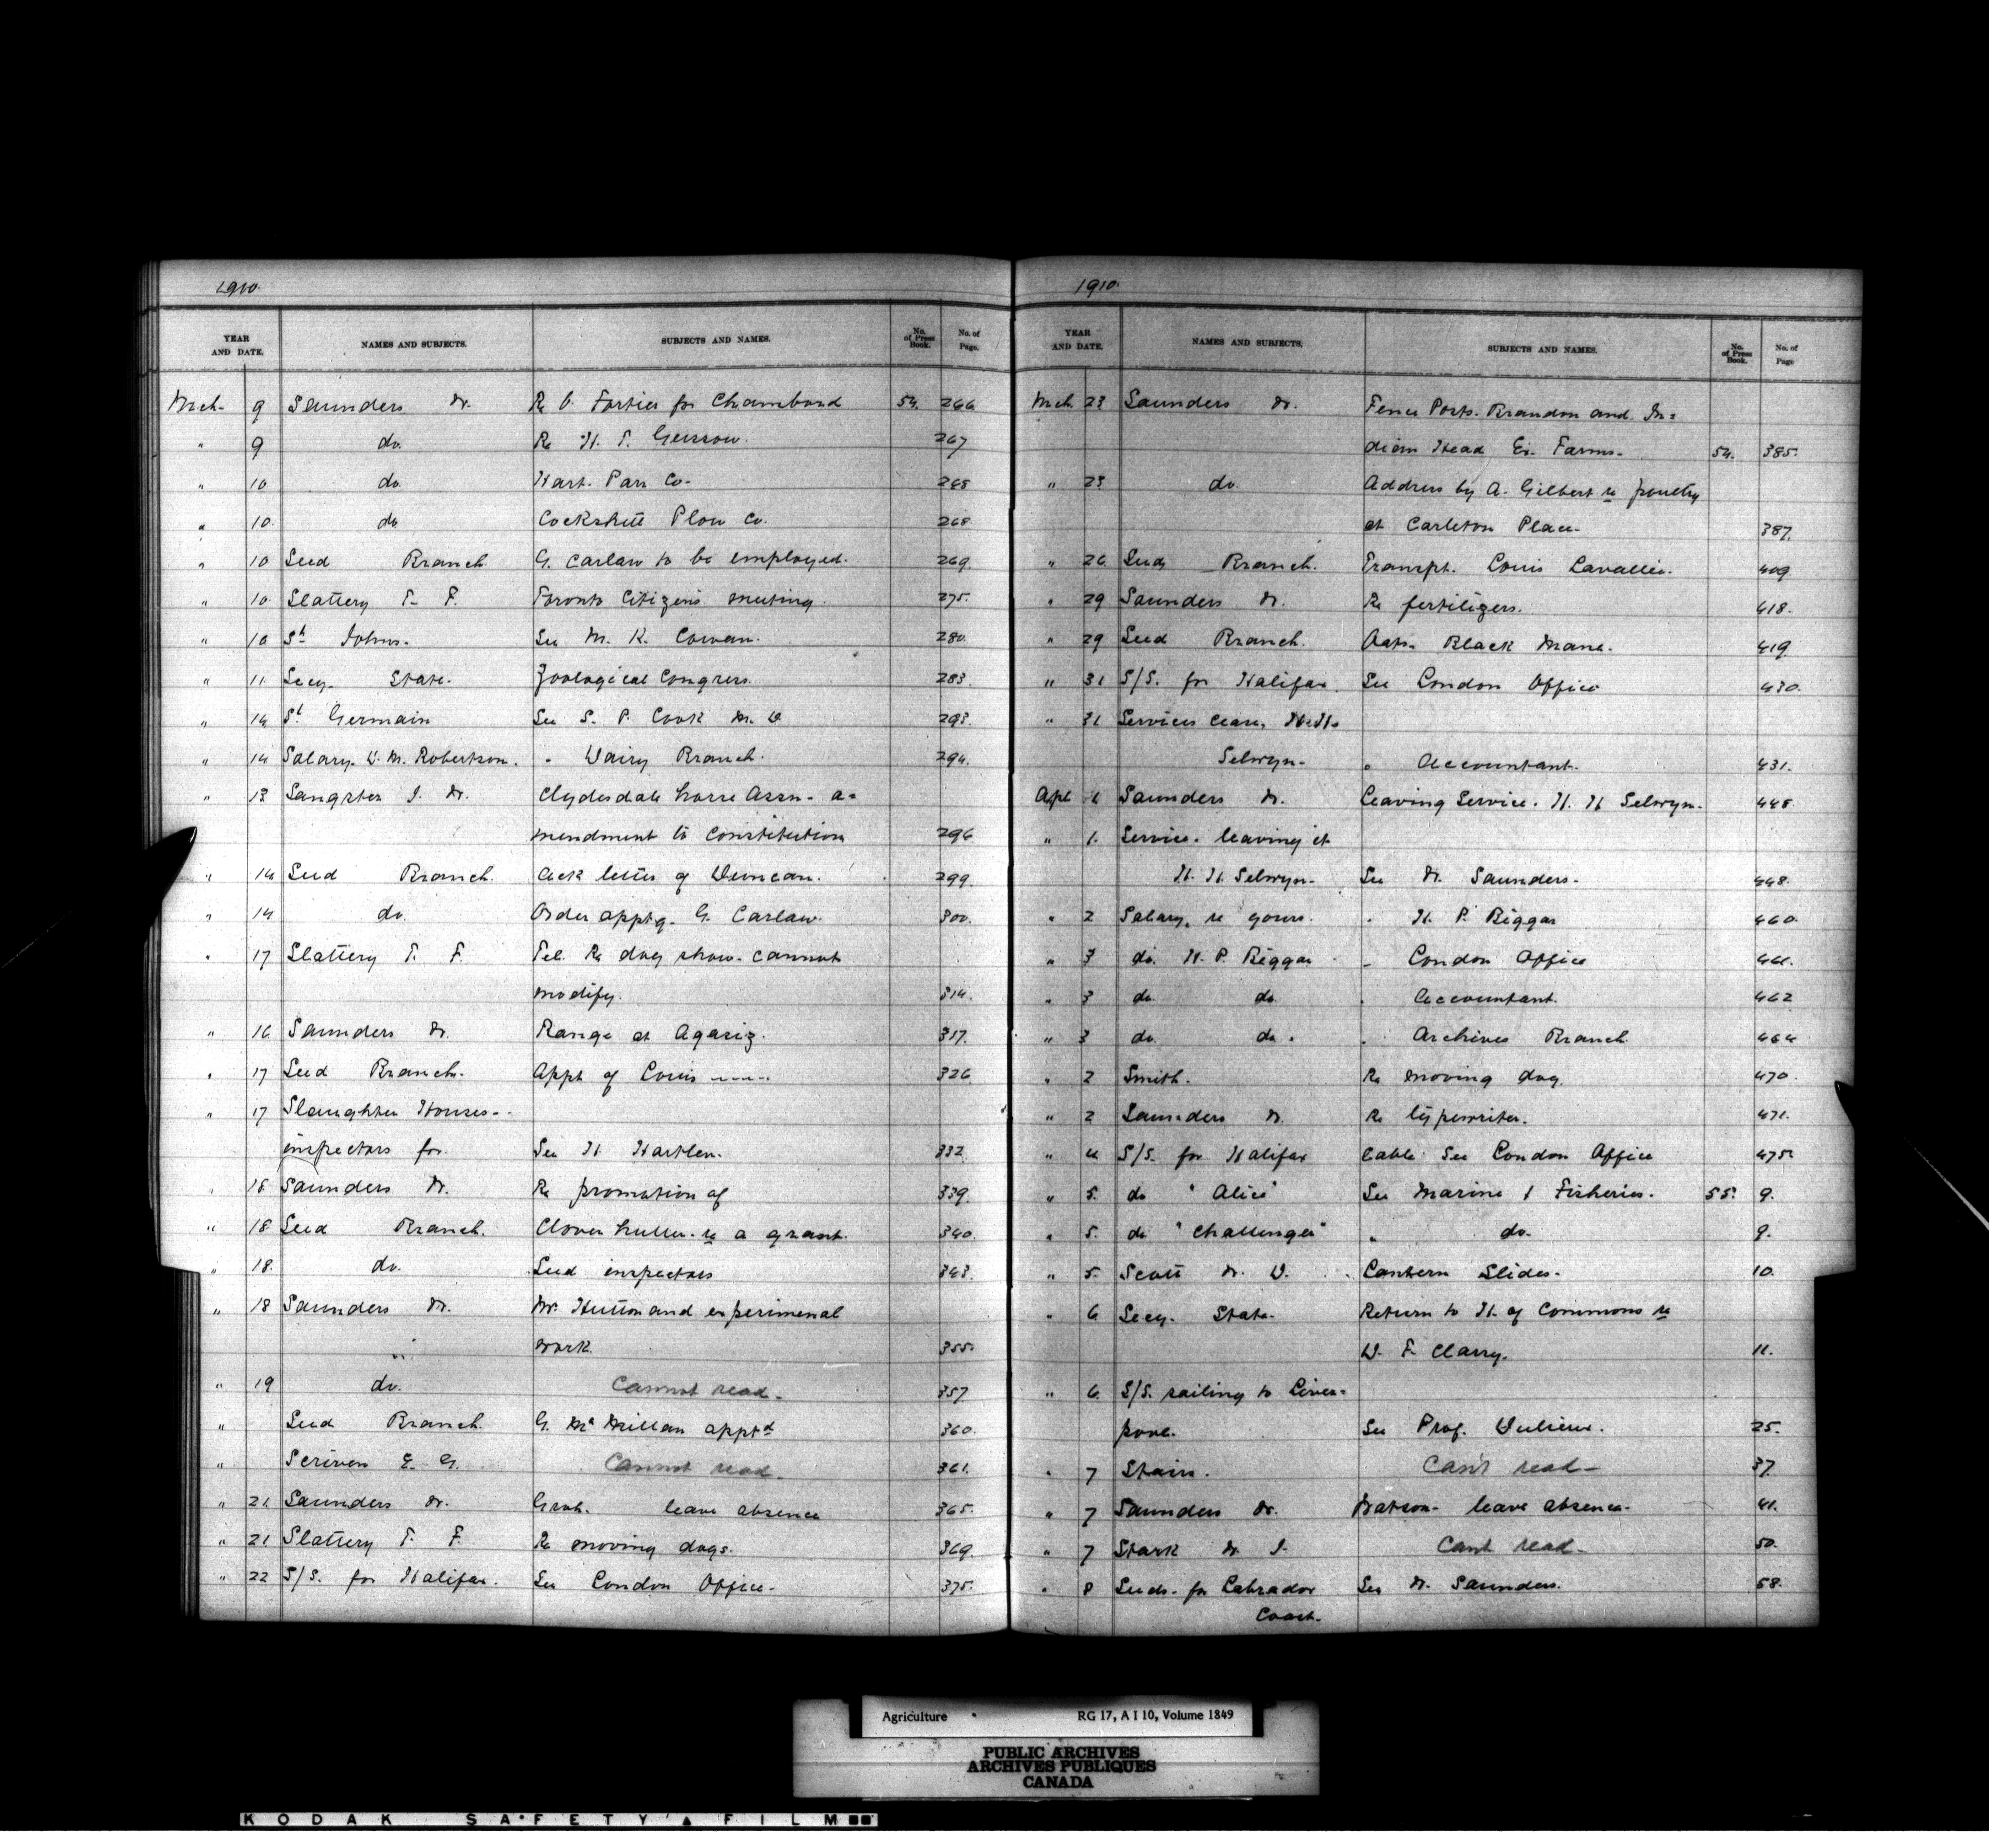 1910.
YEAR AND DATE. NAMES AND SUBJECTS. SUBJECTS AND NAMES. No. of Press Book. No. of Page.
Mch. 9 Saunders Dr. Re O. Fortier for Chambord 54. 266
" 9 do. Re H. T. Gussow. 267
" 10 do. Hart. Parr Co. 268
" 10. do Cockshutt Plow Co. 268
" 10 Seed Branch. G. Carlaw to be employed. 269.
" 10. Slattery T. F. Toronto Citizens meeting. 275.
" 10 St Johns. See M. K. Cowan. 280.
" 11. Secy. State. Zoological Congress. 283.
" 14 St Germain See S. P. Cook M. D. 293.
" 14 Salary. D. M. Robertson. " Dairy Branch. 294.
" 13 Sangster J. W. Clydesdale horse Assn. a=
mendment to Constitution 296
" 14 Seed Branch. Ack letter of Duncan. 299.
" 14 do. Order apptg. G. Carlaw. 300.
" 17 Slattery T. F. Tel. Re dog show. cannot
modify. 314.
" 16 Saunders Dr. Range at Agassiz. 317.
" 17 Seed Branch. Appt of Louis ---- 326
" 17 Slaughter Houses--
inspectors for. See H. Hartlen. 332
" 18 Saunders Dr. Re promotion of 339.
" 18 Seed Branch. Clover huller. re a grant. 340.
" 18. do. Seed inspectors 343.
" 18 Saunders Dr. Mr. Hutton and experimenal
work. 355.
" 19 do. Cannot read. 357
" Seed Branch. G. Mc Millan apptd 360.
" Scriven E. G. Cannot read. 361.
" 21. Saunders Dr. leave absence 365.
" 21 Slattery T. F. Re moving dogs. 369.
" 22 S/S. for Halifax. See London Office. 375.
1910.
YEAR AND DATE. NAMES AND SUBJECTS. SUBJECTS AND NAMES. No. of Press Book. No. of Page
Mch. 23 Saunders Dr. Fence Posts. Brandon and In=
dian Head Ex. Farms. 54. 385.
" 23 do. Address by A. Gilbert re poultry
at Carleton Place. 387.
" 26 Seed Branch. Transpt. Louis Lavallee. 409
" 29 Saunders Dr. Re fertilizers. 418.
" 29 Seed Branch. Oats. Black Mane. 419.
" 31 S/S. for Halifax. See London Office 430.
" 31 Services cease, H. H.
Selwyn. " Accountant. 431.
Apl 1 Saunders Dr. Leaving Service. H. H Selwyn. 448
" 1. Service. leaving it
H. H. Selwyn. See Dr. Saunders. 448.
" 2 Salary, re yours. " H. P. Biggar 460.
" 3 do. H. P. Biggar " London Office 461.
" 3 do do " Accountant. 462
" 3 do. do. " Archives Branch. 464
" 2 Smith. Re moving dog. 470.
" 2 Saunders Dr. Re typewriter. 471.
" 4 S/S. for Halifax Cable See London Office 475.
" 5. do "Alice" See Marine & Fisheries. 55. 9.
" 5. do "Challenger" " do. 9.
" 5. Scott Dr. D. Lantern Slides. 10.
" 6 Secy. State. Return to H. of Commons re
W. F. Clarry. 11.
" 6. S/S. sailing to Liver=
pool. See Prof. 25.
" 7 Stairs. Can't read 37.
" 7 Saunders Dr. Watson. leave absence. 41.
" 7 Stark Dr J. Cant read 50.
" 8 Seeds. for Labrador See Dr. Saunders. 58.
Coast.
Agriculture RG 17, A I 10, Volume 1849
PUBLIC ARCHIVES
ARCHIVES PUBLIQUES
CANADA
KODAK SAFETY FILM